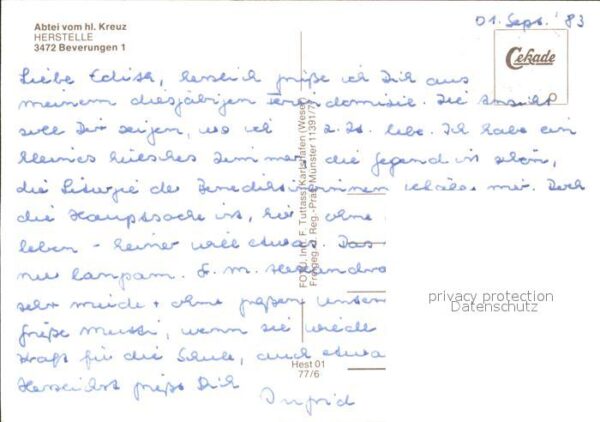 Abtei vom hl. Kreuz
HERSTELLE
3472 Beverungen 1
01. Sept. '83
Cekade
Liebe Edith, herzlich grüße ich Dich aus
meinem diesjährigen Feriendomizil. Die Ansicht
soll Dir zeigen, wo ich z. Zt. lebe. Ich habe ein
kleines hübsches Zimmer, die Gegend ist schön,
die Liturgie der Benediktinerinnen mir. Doch
die Hauptsache ist, hier ohne
leben - keiner will etwas. Das
nur langsam.
sehr müde + ohne unsere
grüße Mutti, wenn sie wieder
Kraft für die Schule, auch etwas
Herzlichst grüßt Dich
Ingrid
FOTO U. Inh. F. Tuttass, Karlshafen (Weser)
Freigeg. d. Reg.-Präs. Münster 11391/77
Hest 01
77/6
privacy protection
Datenschutz